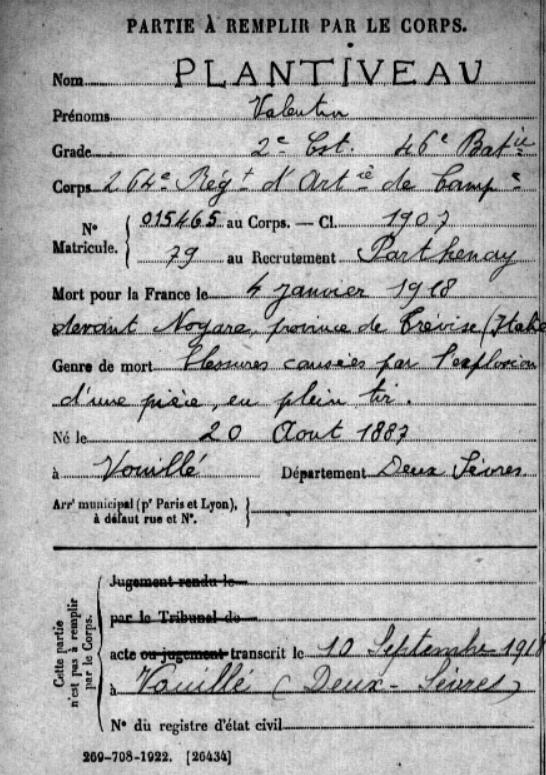 PARTIE À REMPLIR PAR LE CORPS.
Nom PLANTIVEAU
Prénoms Valentin
Grade 2e Cst. 46e Batie
Corps 264e Régt d'Artie de Campe
No Matricule. 015465 au Corps. — Cl. 1907
79 au Recrutement Parthenay
Mort pour la France le 4 janvier 1918
devant Nogare, province de Trévise (Italie
Genre de mort blessures causées par l'explosion
d'une pièce, en plein tir.
Né le 20 Aout 1887
à Vouillé Département Deux Sèvres
Arrt municipal (pr Paris et Lyon),
à défaut rue et No.
Cette partie n'est pas à remplir par le Corps.
Jugement rendu le
par le Tribunal de
acte ou jugement transcrit le 10 Septembre 1918
à Vouillé (Deux-Sèvres)
No du registre d'état civil
269-708-1922. [26434]